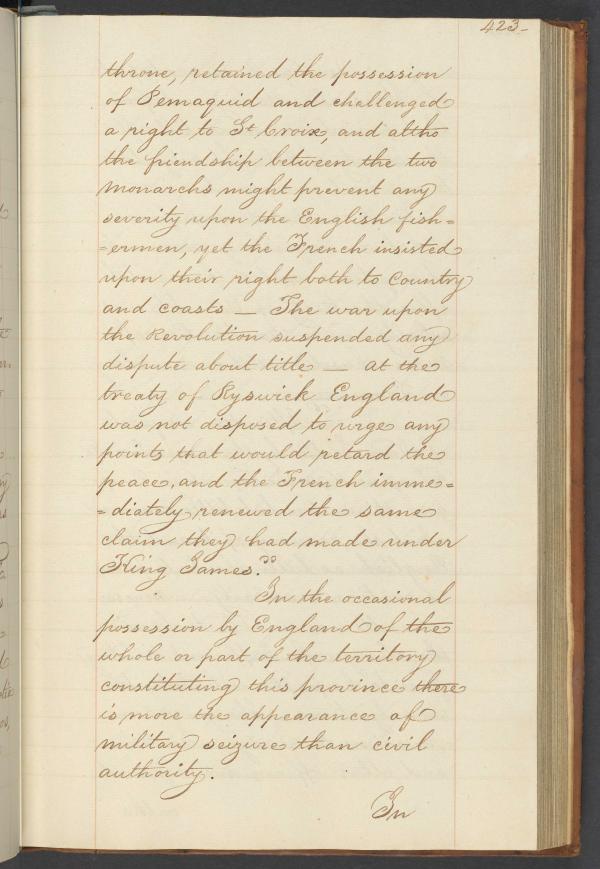 423-
throne, retained the possession
of Pemaquid and challenged
a right to St. Croix, and altho
the friendship between the two
monarchs might prevent any
severity upon the English fish=
=ermen, yet the French insisted
upon their right both to Country
and coasts — The war upon
the Revolution suspended any
dispute about title — at the
treaty of Ryswick England
was not disposed to urge any
points that would retard the
peace, and the French imme=
=diately renewed the same
claim they had made under
King James."
In the occasional
possession by England of the
whole or part of the territory
constituting this province there
is more the appearance of
military seizure than civil
authority.
In